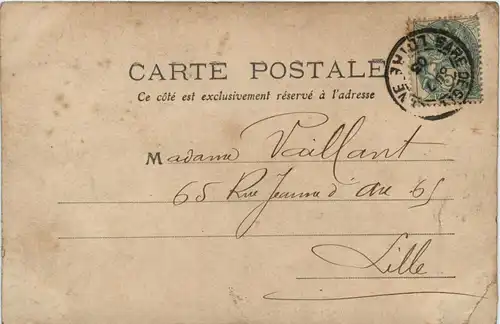 CARTE POSTALE
Ce côté est exclusivement réservé à l'adresse
Madame Vaillant
65 Rue Jeanne d'Arc 65
Lille